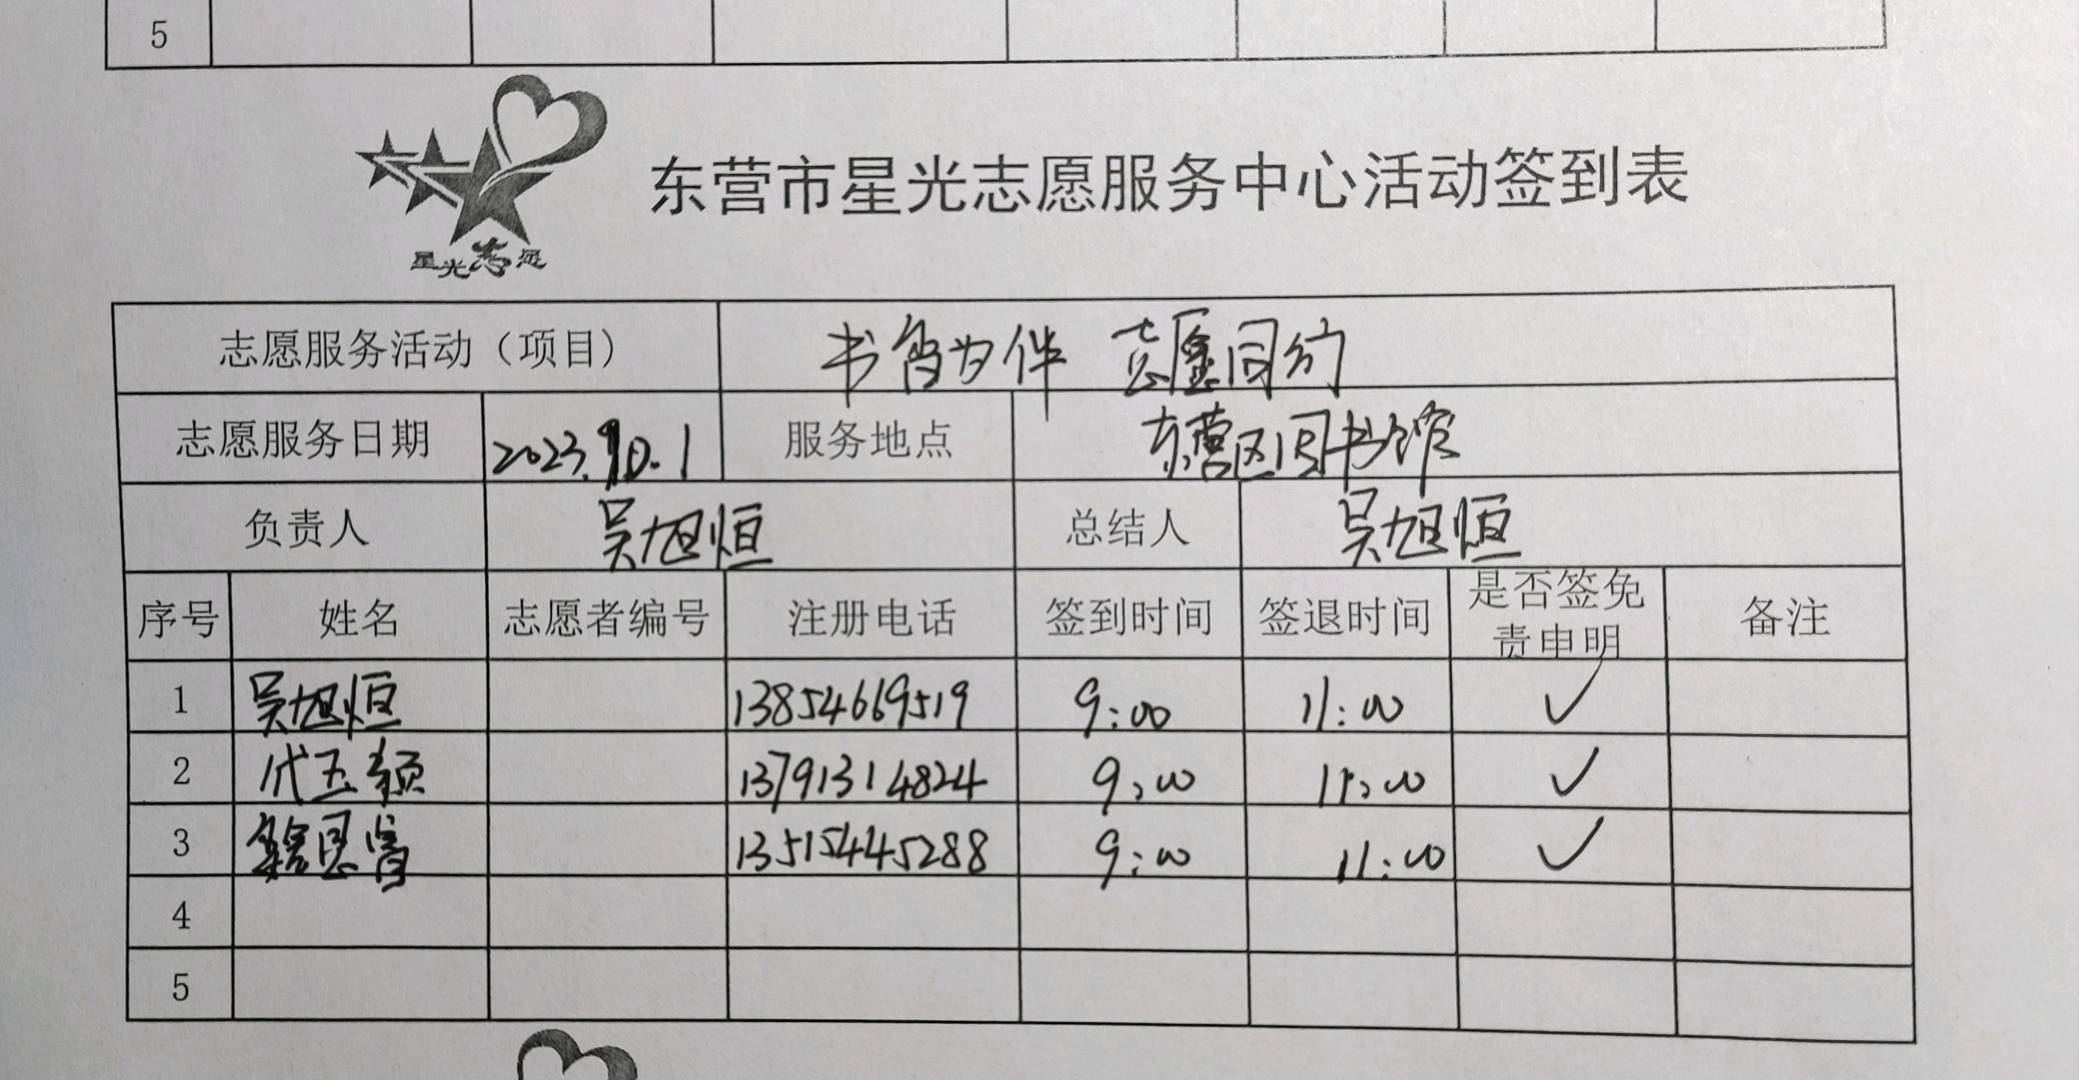 5
星光志愿
东营市星光志愿服务中心活动签到表
志愿服务活动（项目） 书香为伴 志愿同行
志愿服务日期 2023.10.1 服务地点 东营区图书馆
负责人 吴旭恒 总结人 吴旭恒
序号 姓名 志愿者编号 注册电话 签到时间 签退时间 是否签免责申明 备注
1 吴旭恒 13854669519 9:00 11:00 ✓
2 代玉颖 13791314824 9:00 11:00 ✓
3 13515445288 9:00 11:00 ✓
4
5